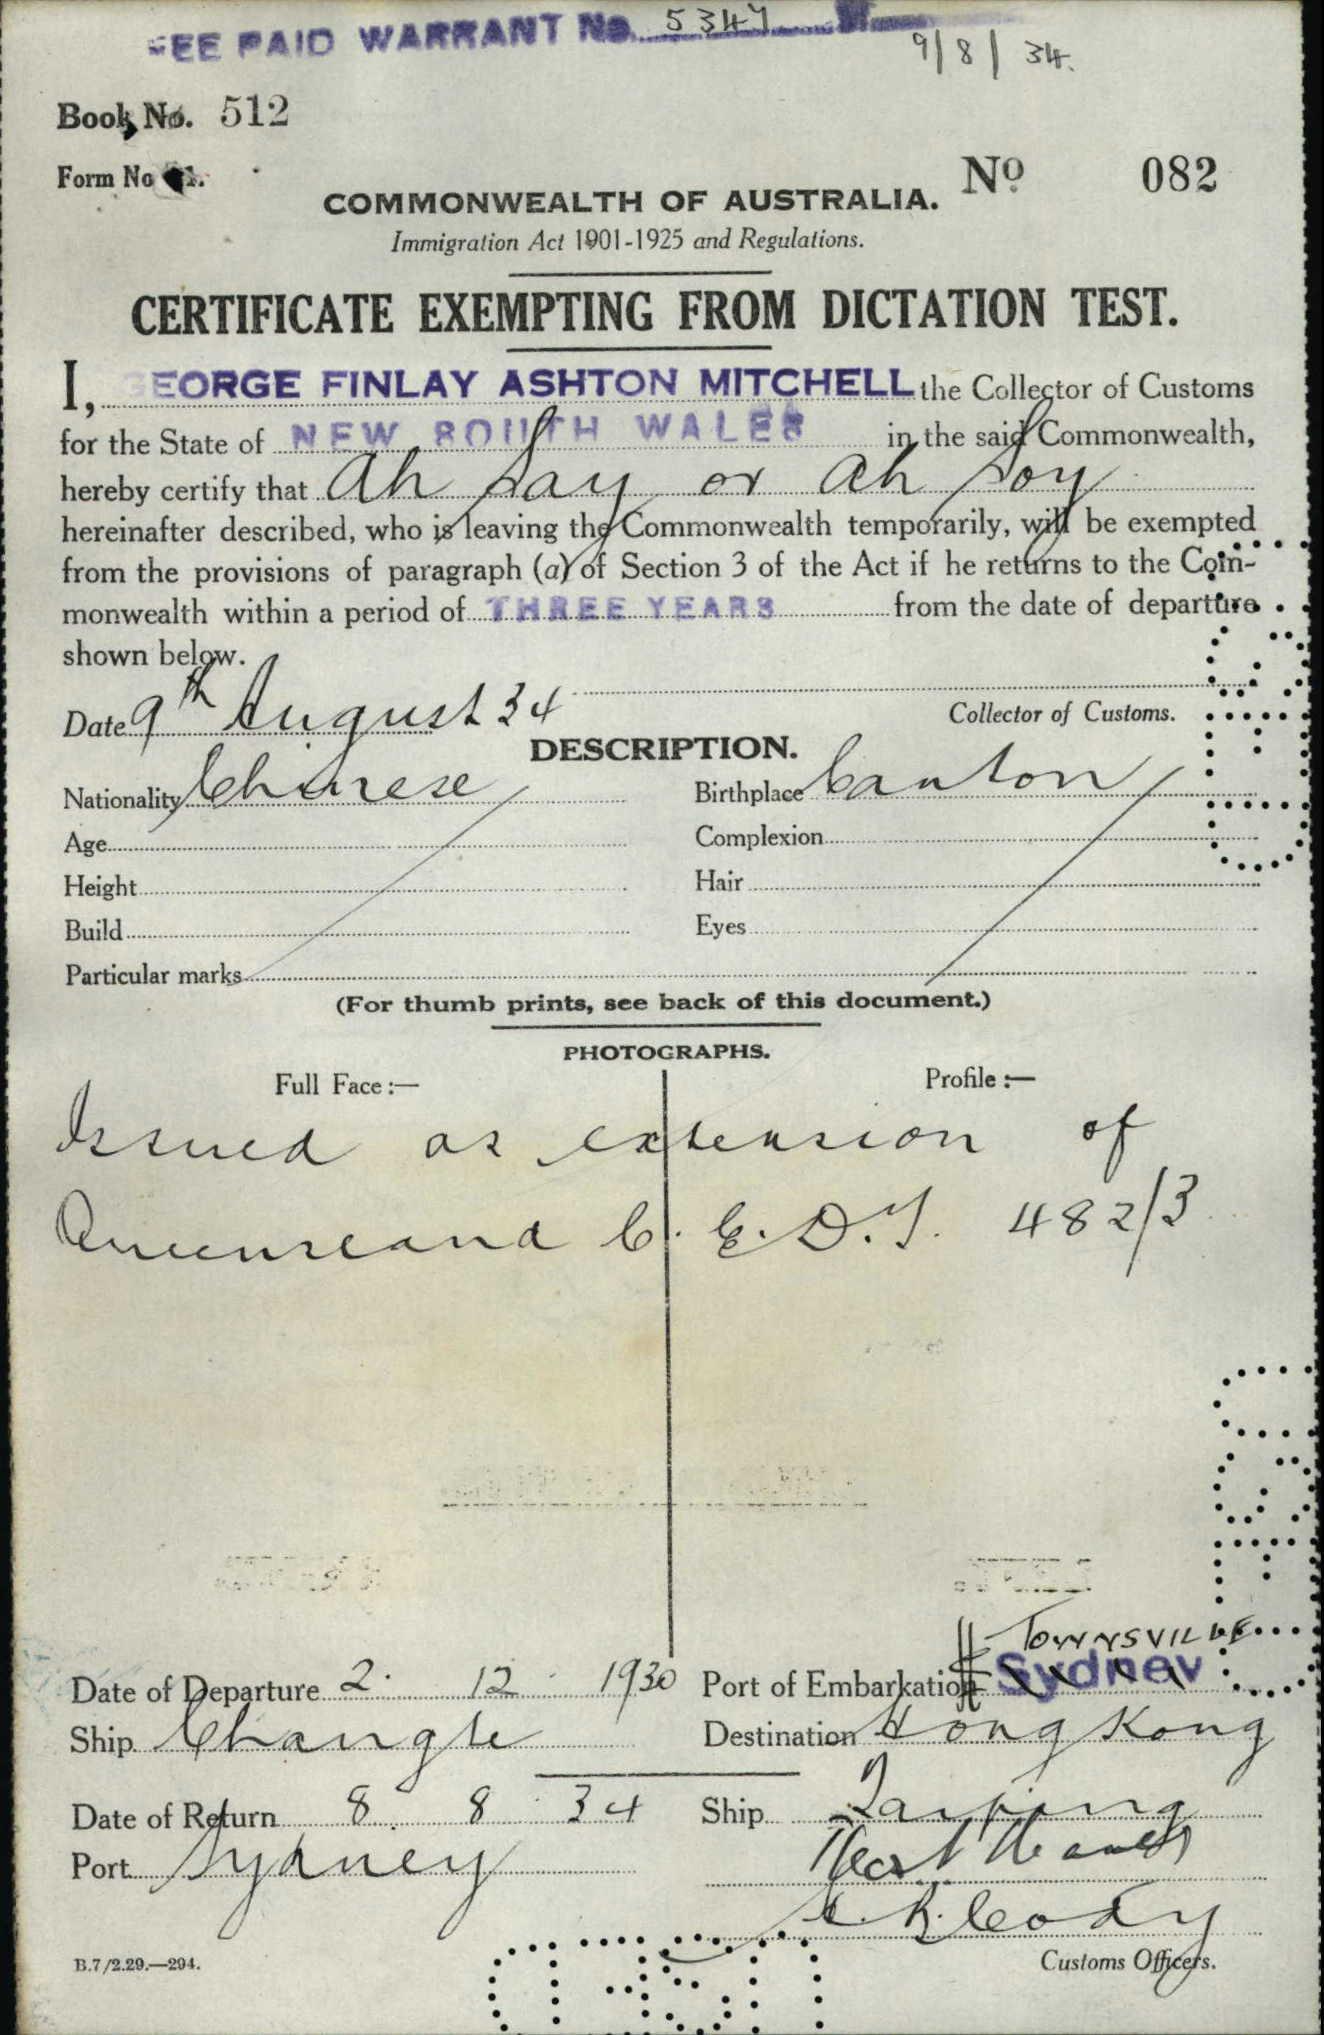 FEE PAID WARRANT No. 5347
9/8/34.
Book No. 512
Form No 21.
No 082
COMMONWEALTH OF AUSTRALIA.
Immigration Act 1901-1925 and Regulations.
CERTIFICATE EXEMPTING FROM DICTATION TEST.
I, GEORGE FINLAY ASHTON MITCHELL the Collector of Customs
for the State of NEW SOUTH WALES in the said Commonwealth,
hereby certify that Ah Say or Ah Soy
hereinafter described, who is leaving the Commonwealth temporarily, will be exempted
from the provisions of paragraph (a) of Section 3 of the Act if he returns to the Com-
monwealth within a period of THREE YEARS from the date of departure
shown below.
Date 9th August 34
Collector of Customs.
DESCRIPTION.
Nationality Chinese Birthplace Canton
Age Complexion
Height Hair
Build Eyes
Particular marks
(For thumb prints, see back of this document.)
PHOTOGRAPHS.
Full Face :— Profile :—
Issued as extension of
Queensland C. E. D. T. 482/3
TOWNSVILLE
Date of Departure 2. 12 1930 Port of Embarkation Sydney
Ship Changte Destination Hong Kong
Date of Return 8. 8 34 Ship Taiping
Port Sydney
Cody
B.7/2.29.—294.
Customs Officers.